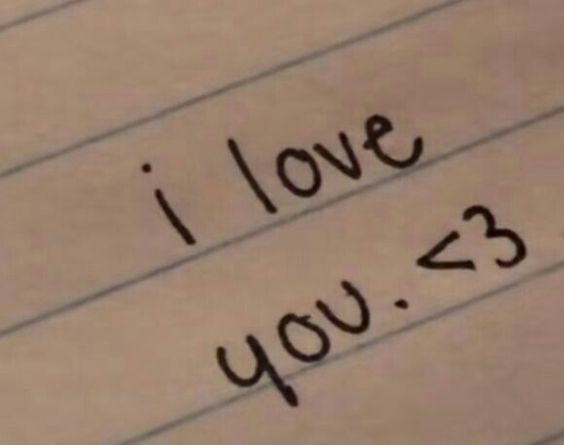 i love
you. <3